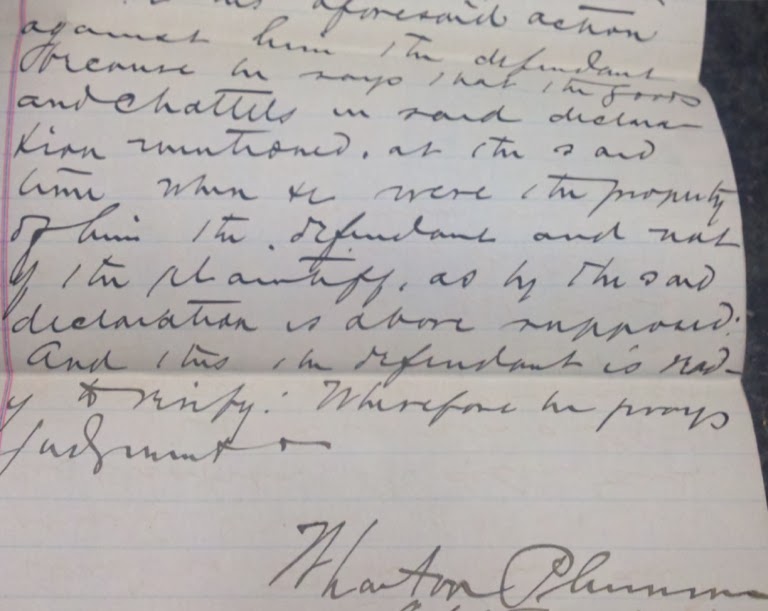 his aforesaid action
against him the defendant
because he says that the goods
and Chattels in said declara-
tion mentioned, at the said
time when &c were the property
of him the defendant and not
of the plaintiff, as by the said
declaration is above supposed:
And this the defendant is read-
y to verify: Wherefore he prays
judgment &c
Wharton Plummer